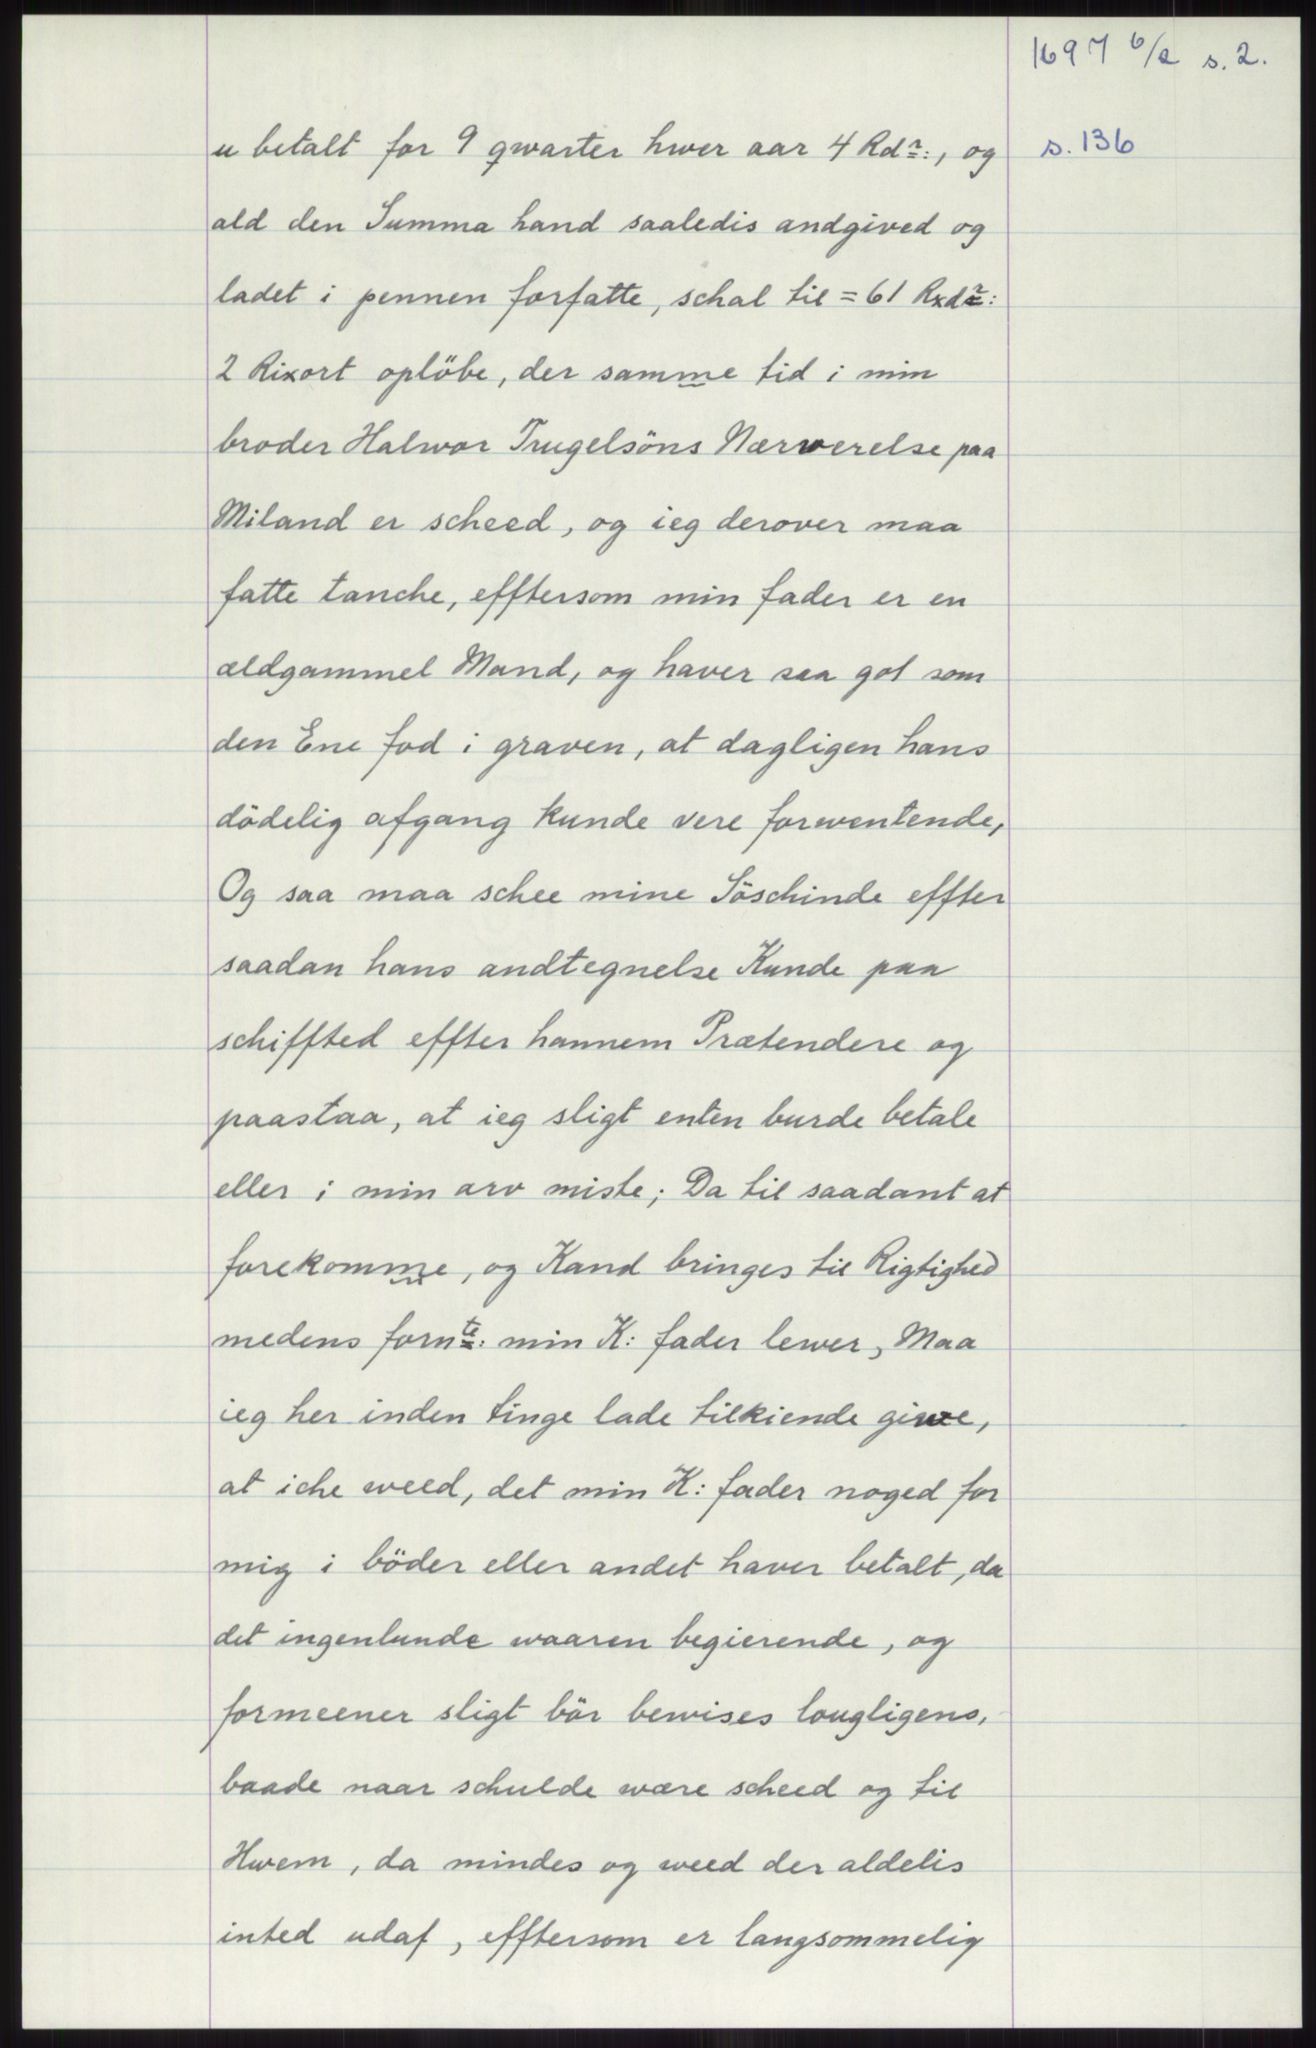 1697 6/2 s. 2.
u betalt for 9 qwarter hwer aar 4 Rdr:, og
s. 136
ald den Summa hand saaledis andgived og
ladet i pennen forfatte, schal til = 61 Rxdr:
2 Rixort oplöbe, der samme tid i min
broder Halwor Trugelsöns Nærwerelse paa
Miland er scheed, og ieg derover maa
fatte tanche, efftersom min fader er en
ældgammel Mand, og haver saa got som
den Ene fod i graven, at dagligen hans
dödelig afgang kunde vere forwentende,
Og saa maa schee mine Söschinde effter
saadan hans andtegnelse Kunde paa
schiffted effter hannem Prætendere og
paastaa, at ieg sligt enten burde betale
eller i min arv miste; Da til saadant at
forekomme, og Kand bringes til Rigtighed
medens fornte: min K: fader lewer, Maa
ieg her inden tinge lade tilkiende giwe,
at iche weed, det min K: fader noged for
mig i böder eller andet haver betalt, da
det ingenlunde waaren begierende, og
formeener sligt bör bewises lougligens,
baade naar schulde wære scheed og til
Hwem, da mindes og weed der aldelis
inted udaf, efftersom er langsommelig